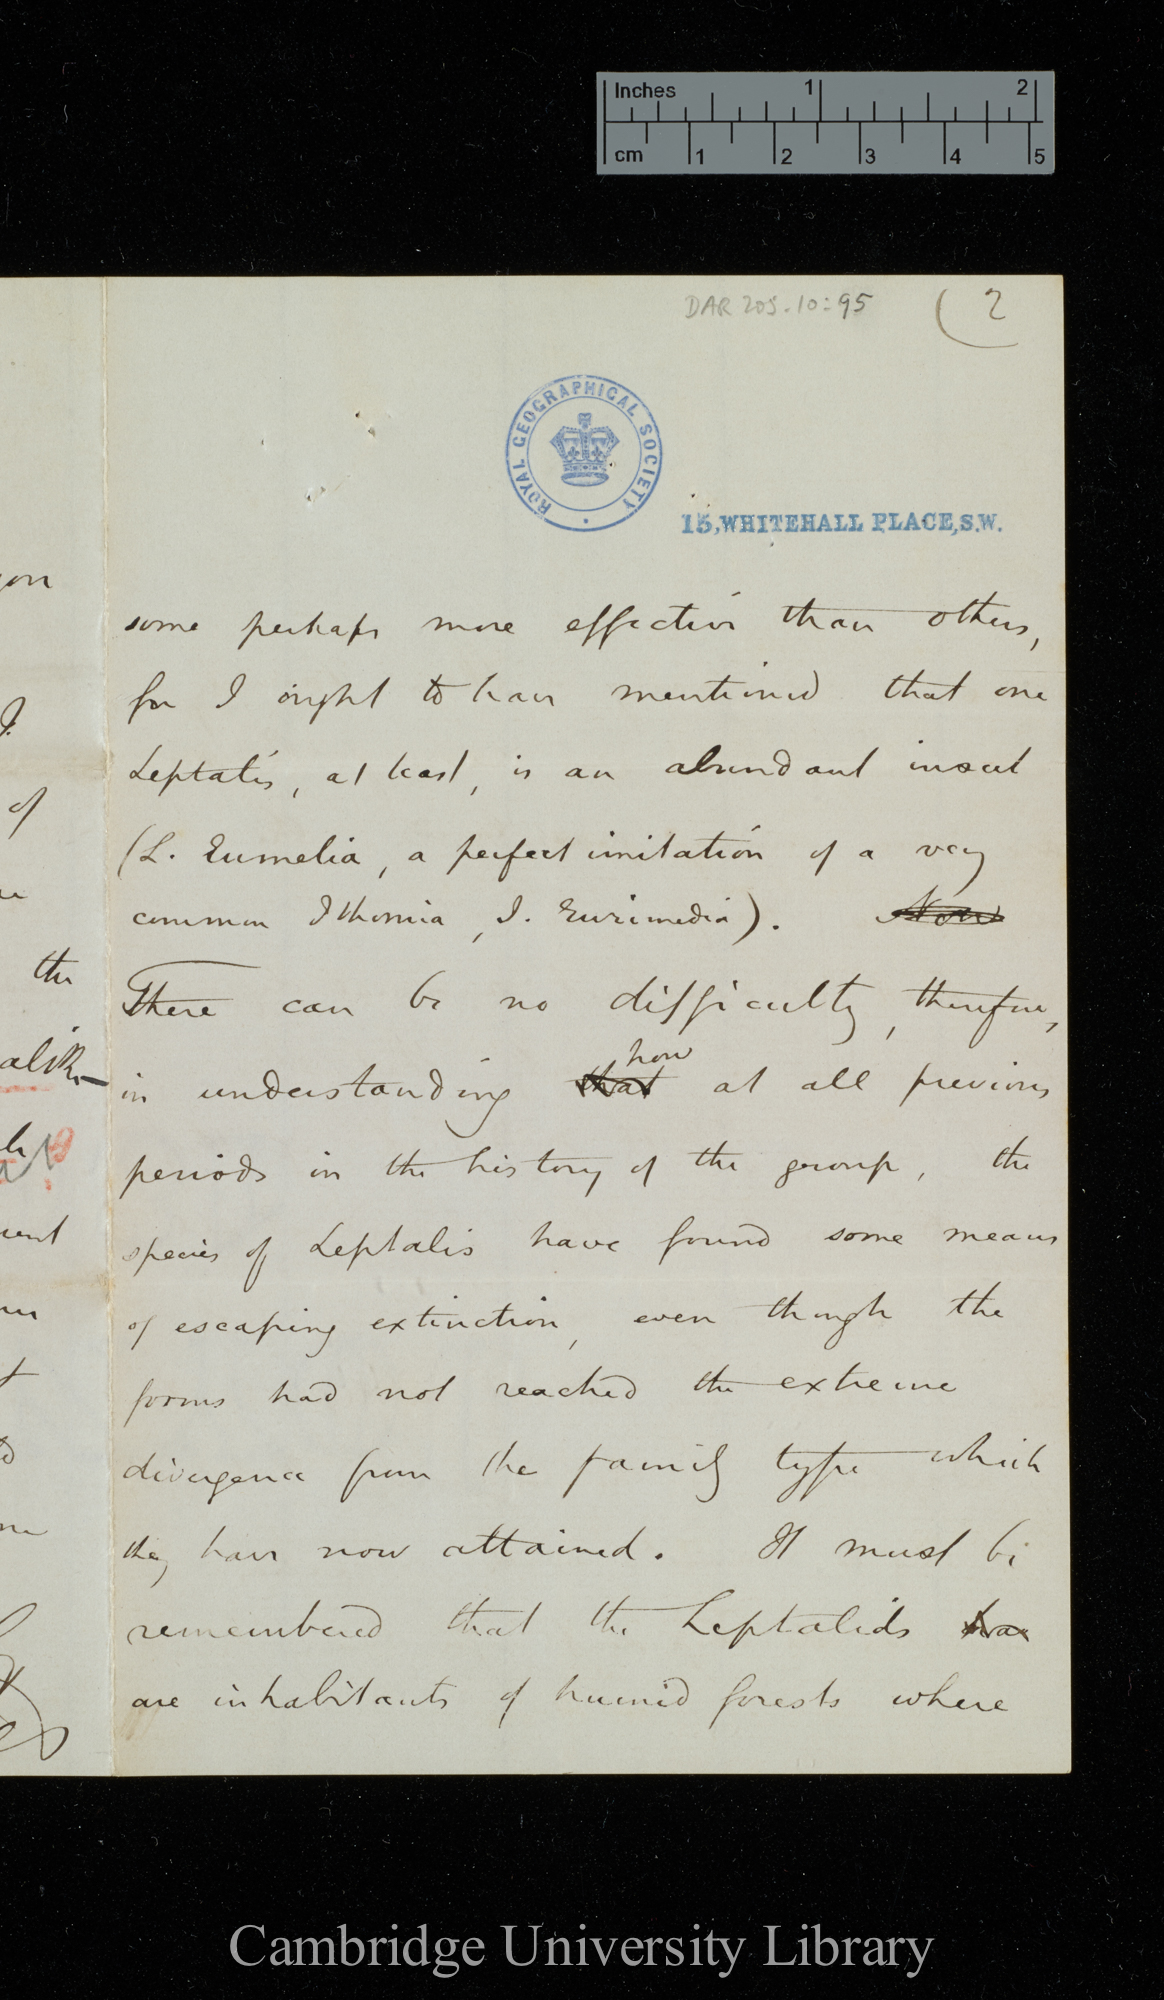 Inches 1 2
cm 1 2 3 4 5
DAR 205.10:95
(2
ROYAL GEOGRAPHICAL SOCIETY
15, WHITEHALL PLACE, S.W.
some perhaps more effective than others,
for I ought to have mentioned that one
Leptalis, at least, is an abundant insect
(L. Eumelia, a perfect imitation of a very
common Ithomia, I. Eurimedia). Now
There can be no difficulty, therefore,
how
in understanding that at all previous
periods in the history of the group, the
species of Leptalis have found some means
of escaping extinction, even though the
forms had not reached the extreme
divergence from the family type which
they have now attained. It must be
remembered that the Leptalids ha
are inhabitants of humid forests where
of
the
alike
Cambridge University Library